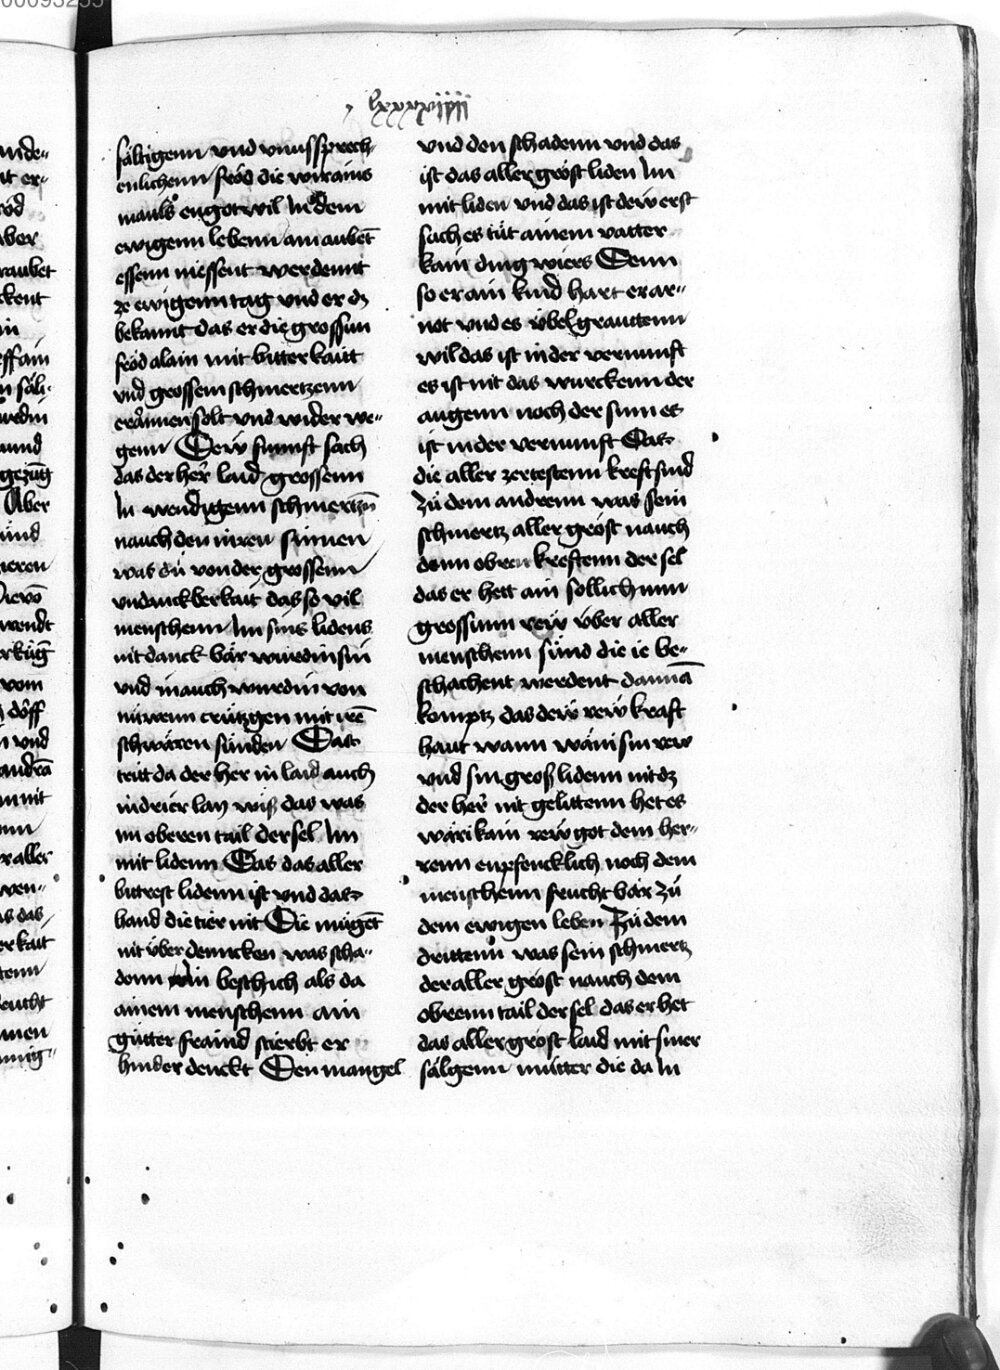 lxxxxviiii
fältigenn vnd vnussprech-
enlichenn fröd die wir ains
mauls en got wil In dem
ewigenn lebenn am aubēt
essenn niessent werdennt
ze ewigenn tag vnd er dz
bekannt das er die grossun
fröd alain mit bitterkaitt
vnd grossem schmertzenn
erarnen solt vnd wider we-
genn Dew fünnft sach
das der her laid grossenn
In wendigenn schmertzn̄
nauch den inren sinnen
was du von der grossenn
vndanckberkait das so vil
menschenn Im sins lidens
nit danck bär wurdin sin
vnd in auch wurdin von
nüwem crützgen mit irē
schwären sünden Das
tritt da der her in laid auch
in drier lay wiß das was
im oberen tail der sel Im
mit lidenn Das das aller
bittrest lidenn ist vnd das
hand die tier nit Die mügēt
nit über denncken was scha-
denn in beschich als da
ainem menschenn ain
gütter fraind stierbt er
hinder denckt Den mangel
vnd den schadenn vnd das
ist das aller gröst liden Im
mit liden vnd das ist dew erst
sach es tüt ainem vatter
kain ding wiers Denn
so er ain kind hart erar-
not vnd es übel grauttenn
wil das ist in der vernunft
es ist nit das wurckenn der
augenn noch der sinn es
ist in der vernunft Das
die aller zertestenn kreft sind
Zü dem andrenn was sein
schmertz aller gröst nauch
denn obren kreftenn der sel
das er hett ain sollichunn
grossunn rew über aller
menschenn sünd die ie be-
schachent werdent dannā
komptz das dew rew kraft
haut wann wäri sin rew
vnd sin groß lidenn nit dz
der her nit gelittenn het es
wäri kain rew got dem her-
renn enpfencklich noch dem
menschenn frucht bär zü
dem ewigen leben Zü dem
drittenn was sein schmertz
der aller gröst nauch dem
obrenn tail der sel das er het
das aller gröst laid mit siner
säligenn mütter die da In